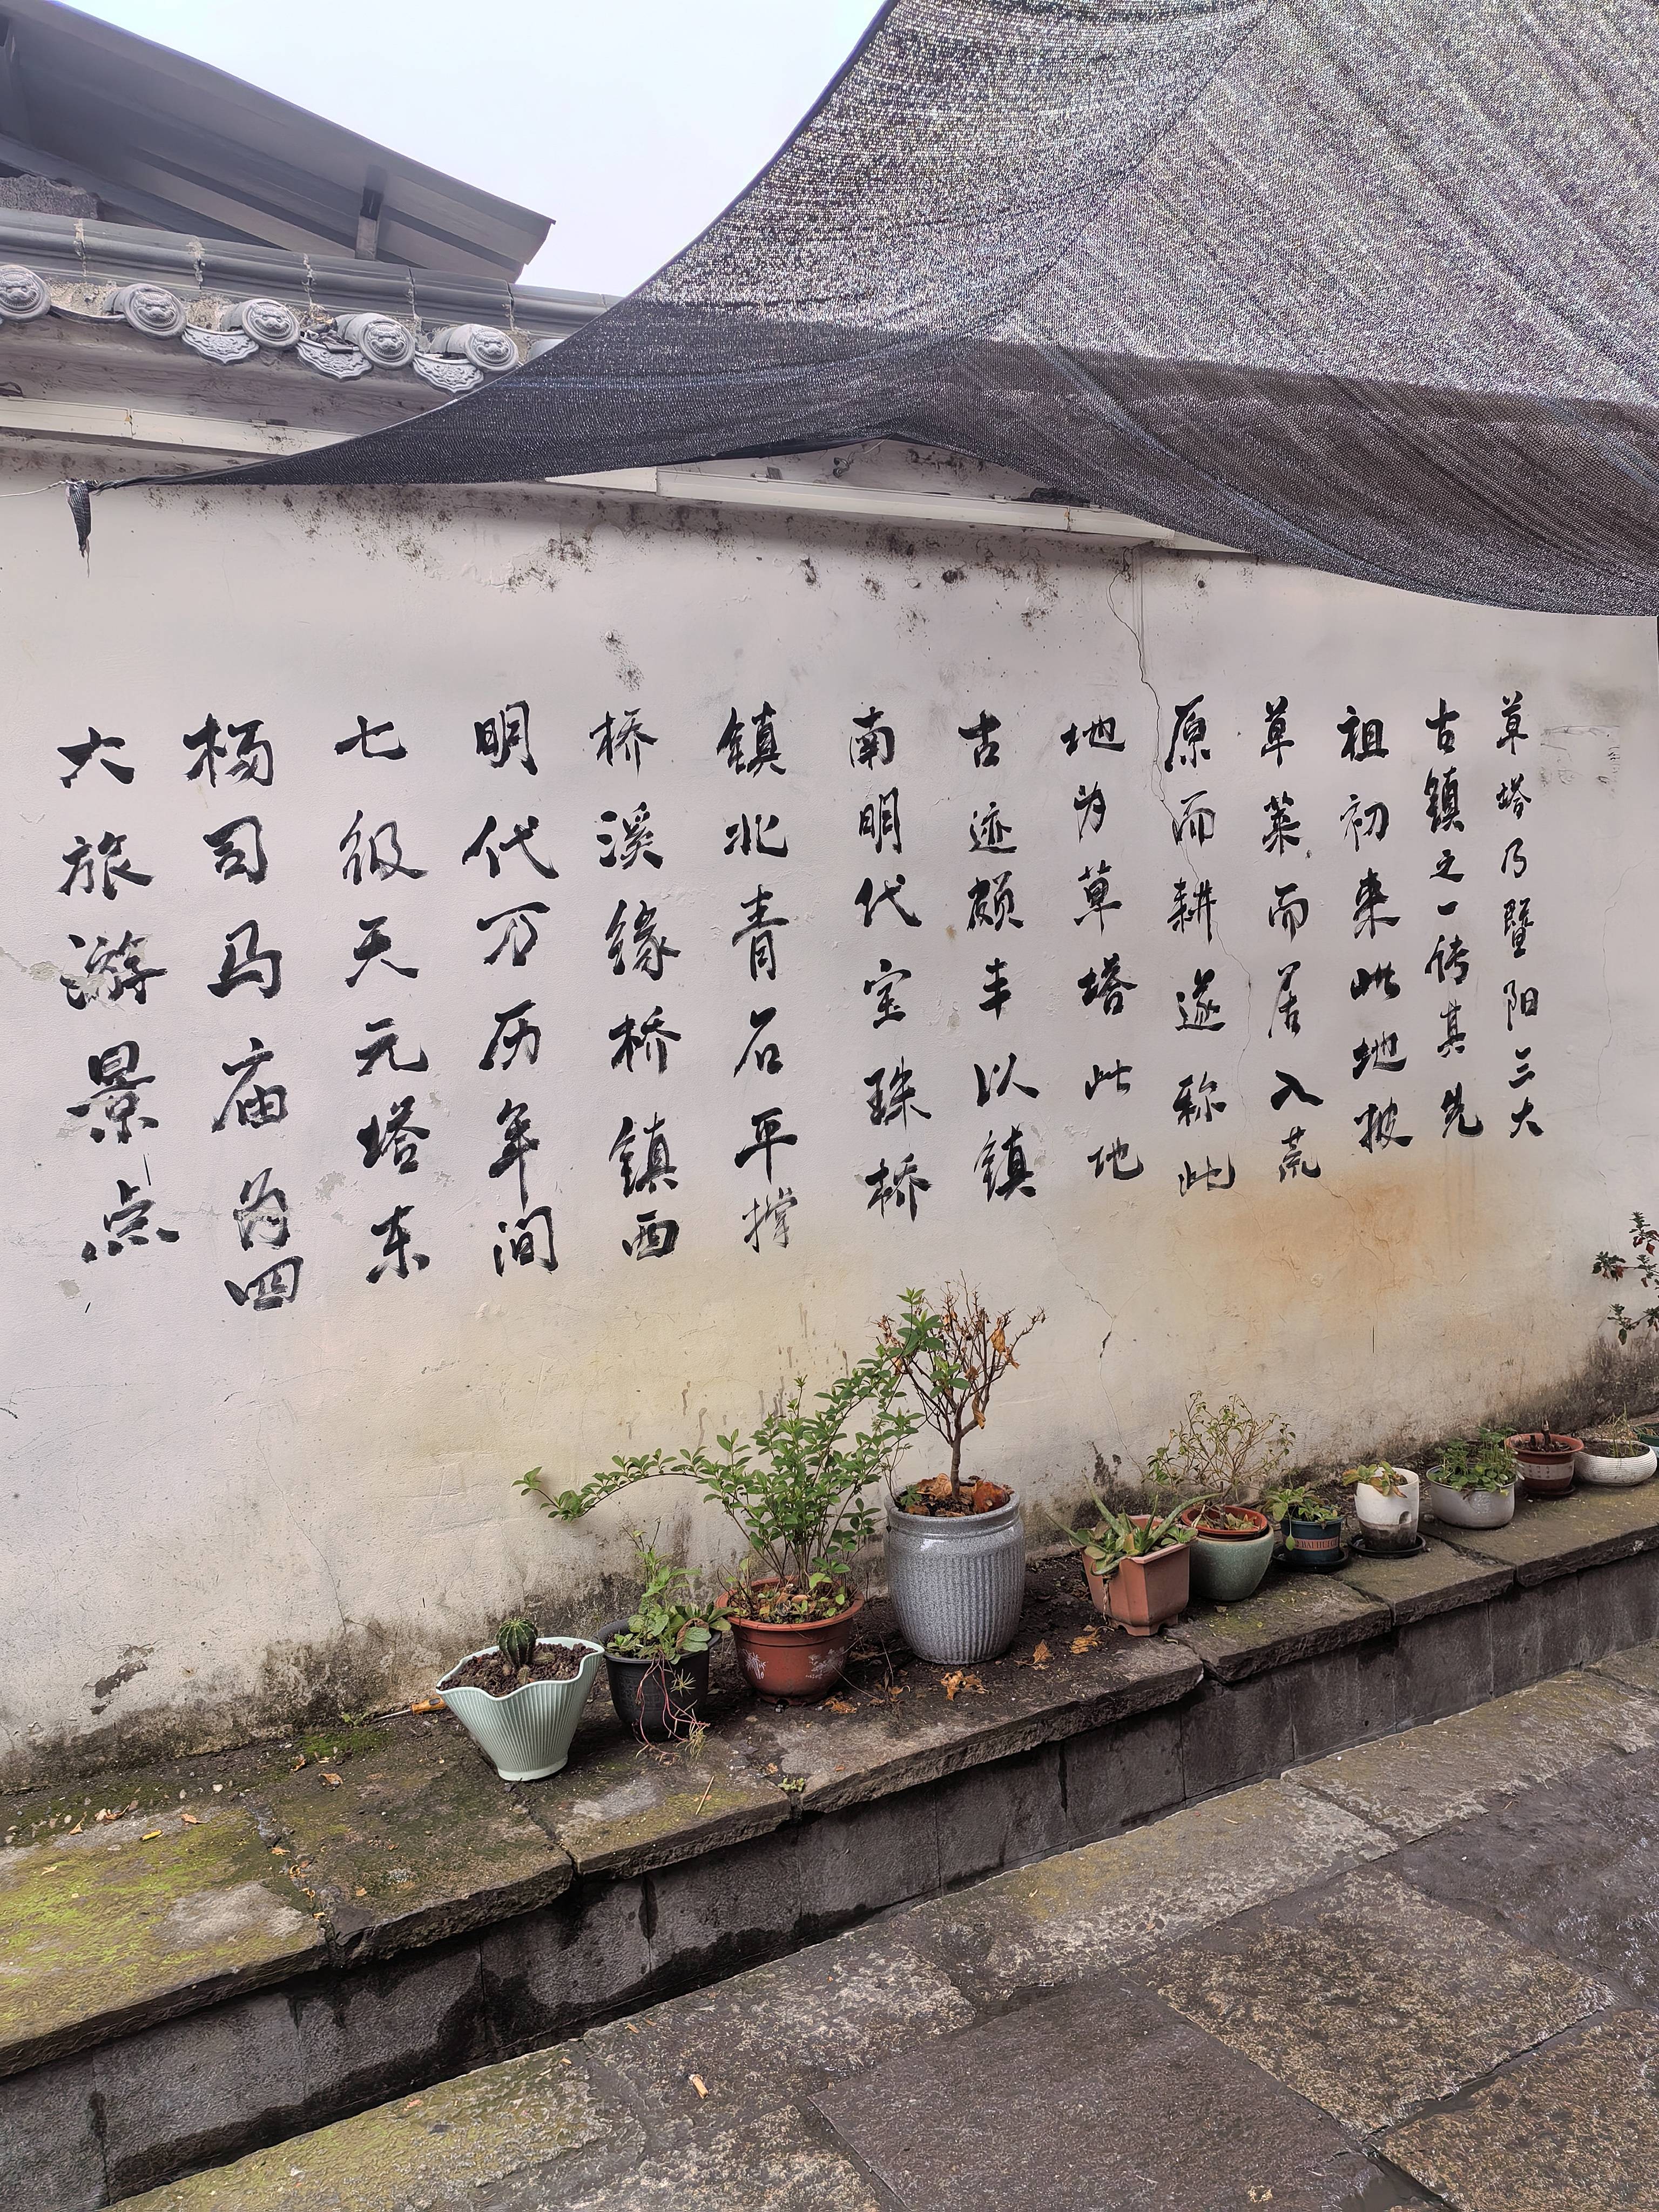 草塔乃暨阳三大
古镇之一传其先
祖初来此地披
草莱而居入荒
原而耕遂称此
地为草塔此地
古迹颇丰以镇
南明代宝珠桥
镇北青石平撑
桥溪缘桥镇西
明代万历年间
七级天元塔东
杨司马庙为四
大旅游景点
BAIHUI